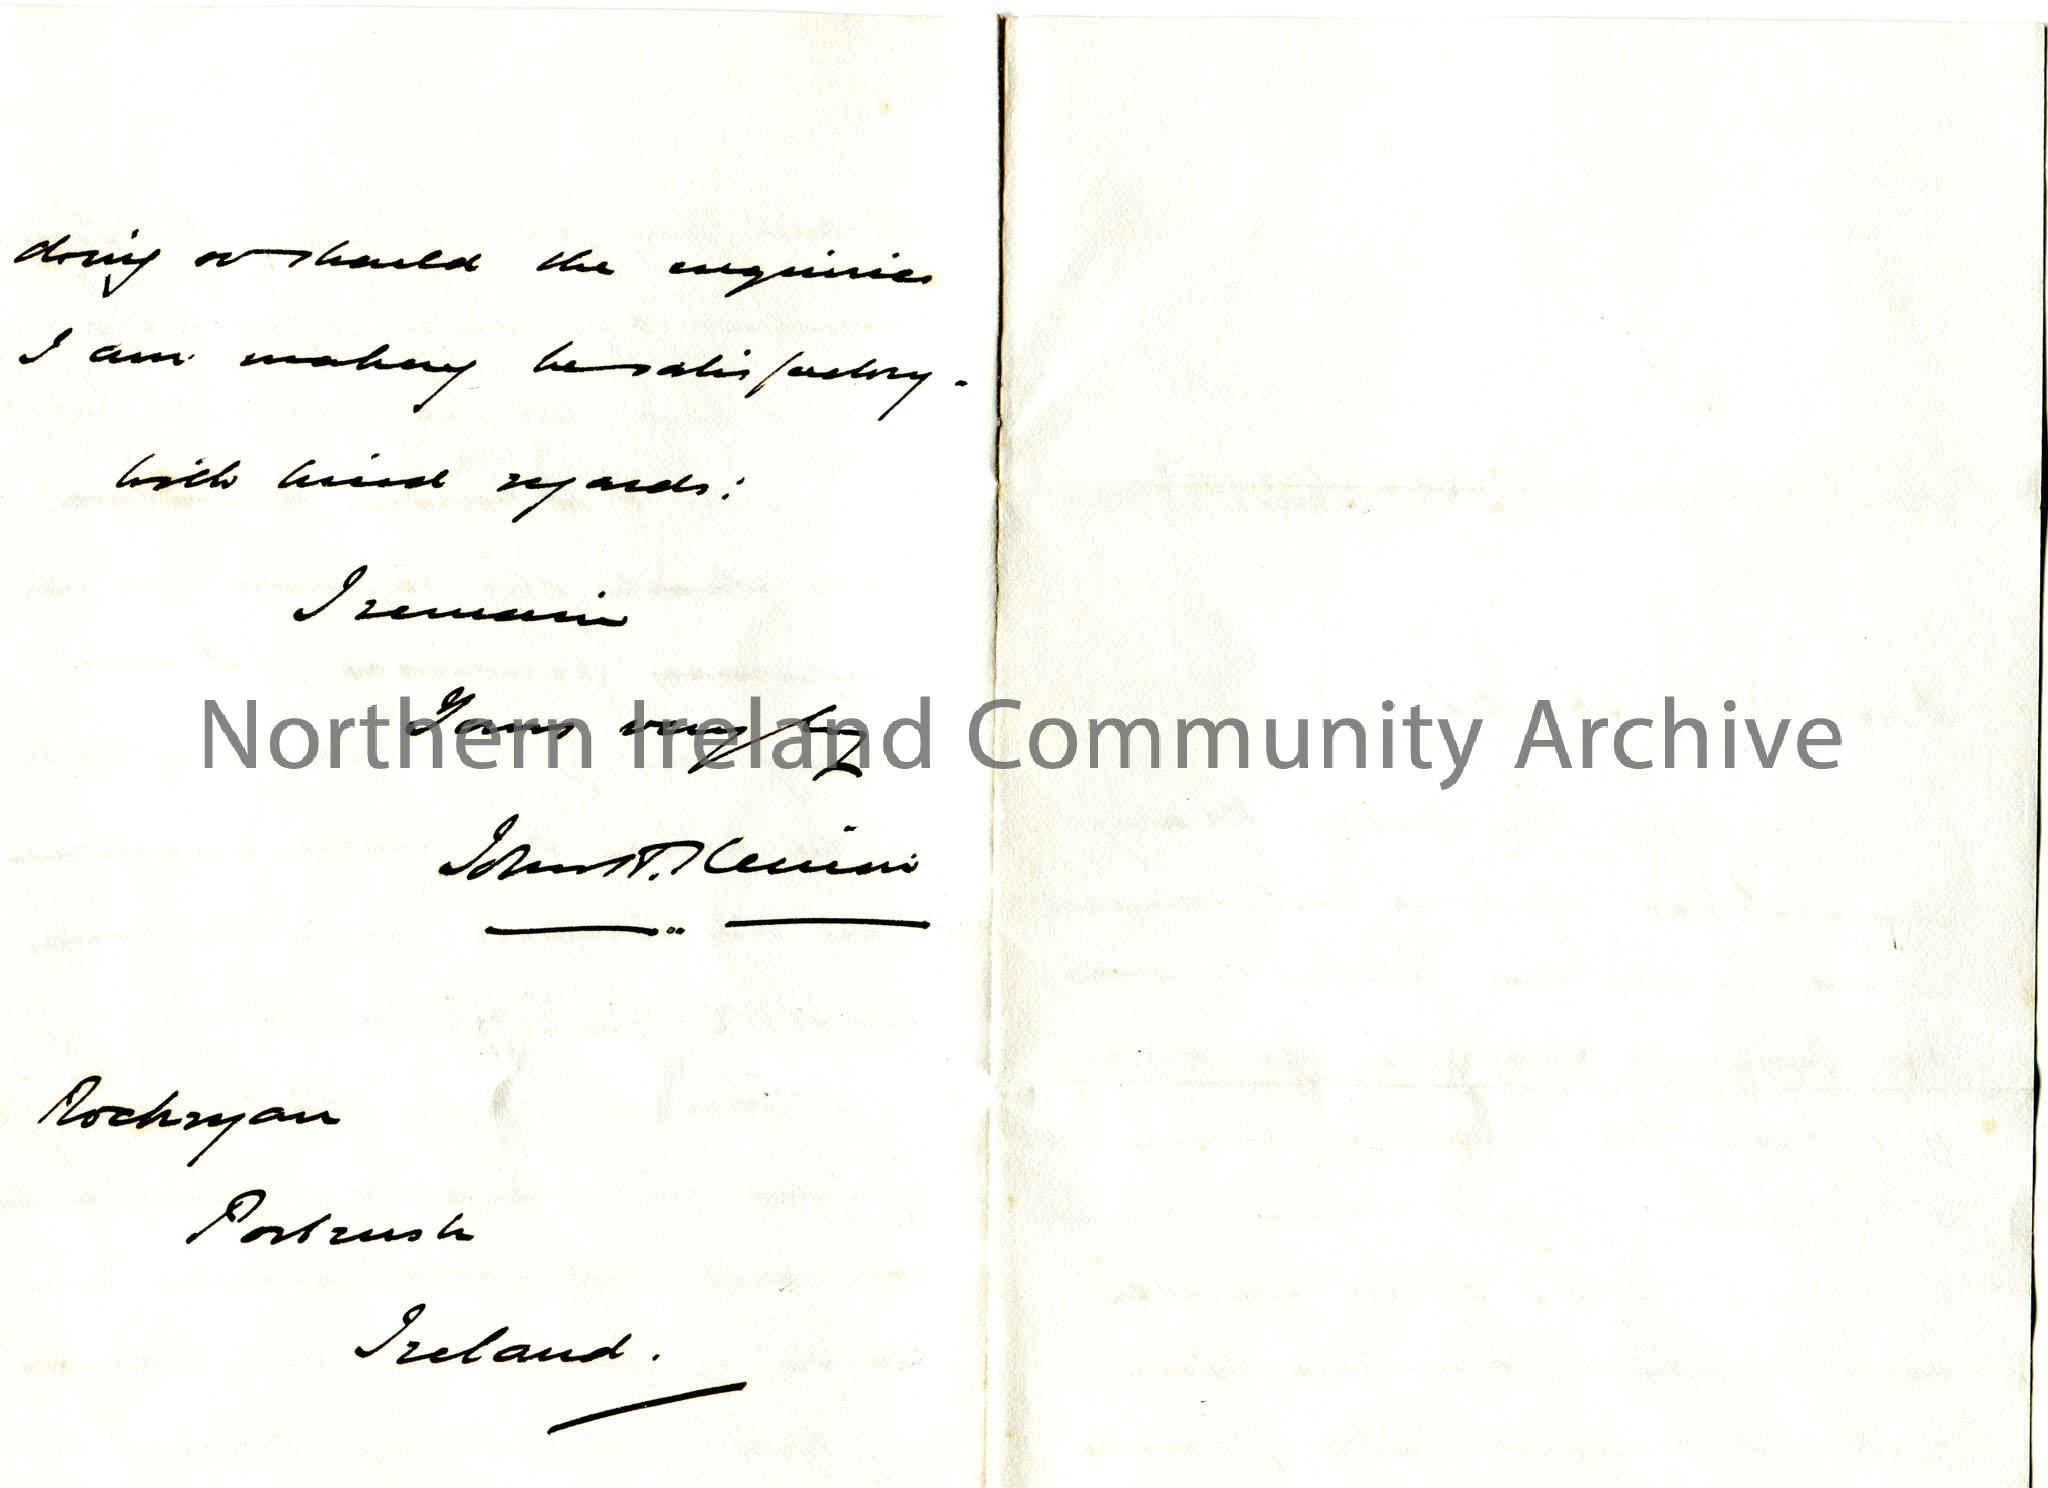 doing so should the enquiries
I am making be satisfactory.
With kind regards:
I remain
Yours very fy
Northern Ireland Community Archive
John
Rockryan
Portrush
Ireland.